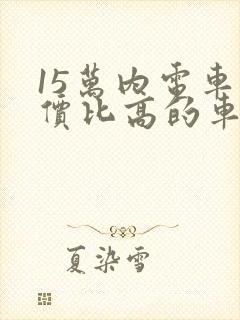 15萬內電車
價比高的車
夏染雪